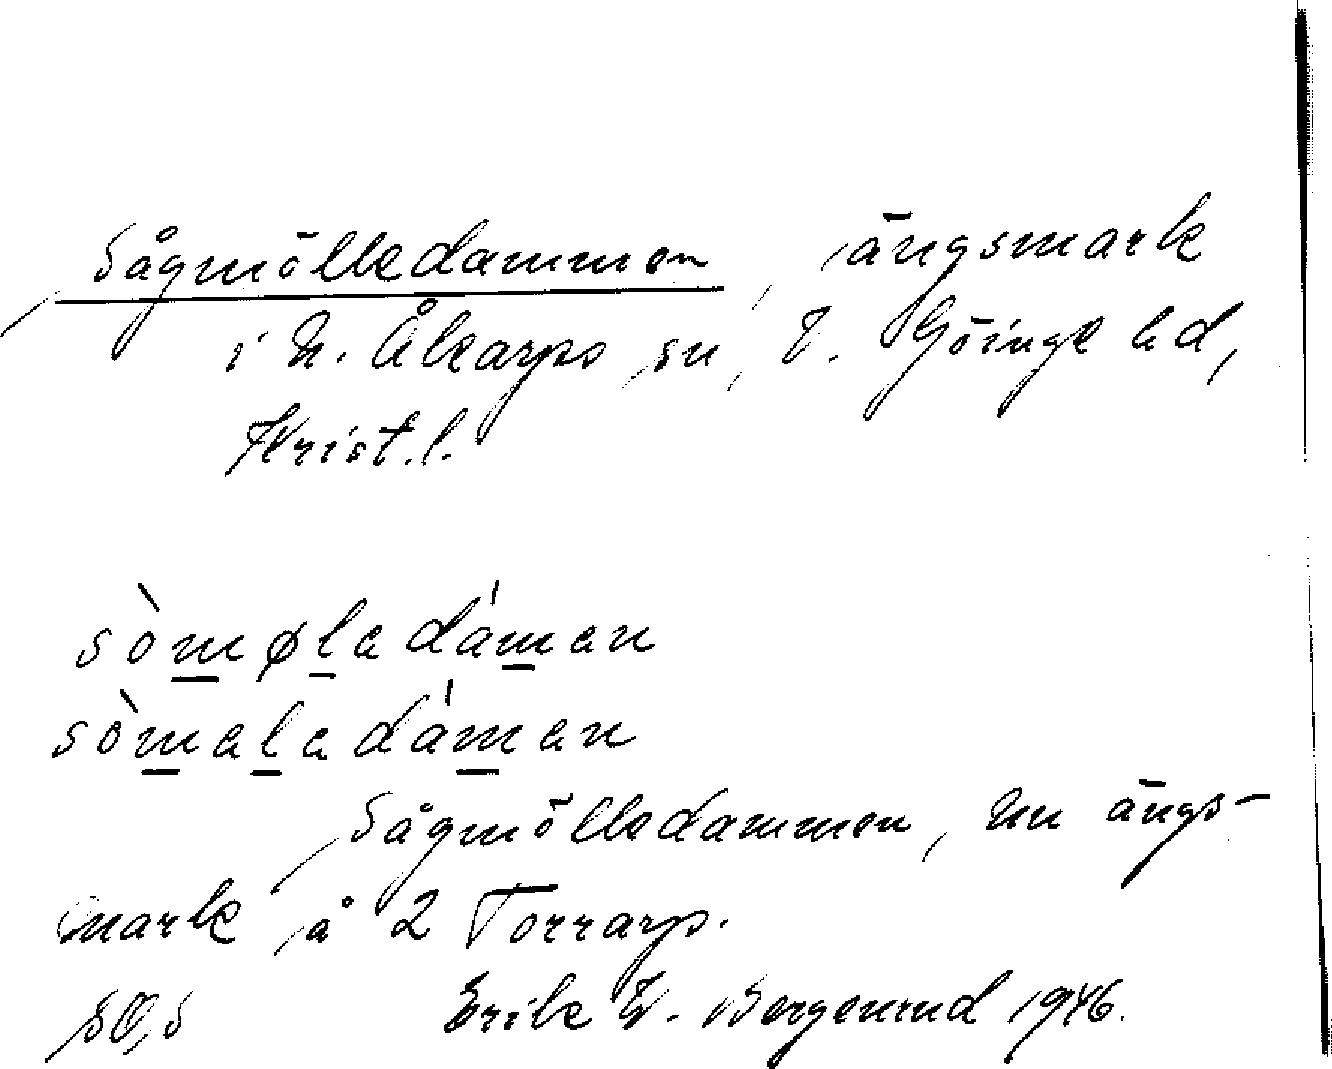 Sågmölledammen, ängsmark
i N. Åkarps sn, V. Göinge hd,
Krist. l.
sòmøladámen
sòmaladámen
Sågmölledammen, nu ängs-
mark å 2 Torrarp.
Erik W. Bergenrud 1946.